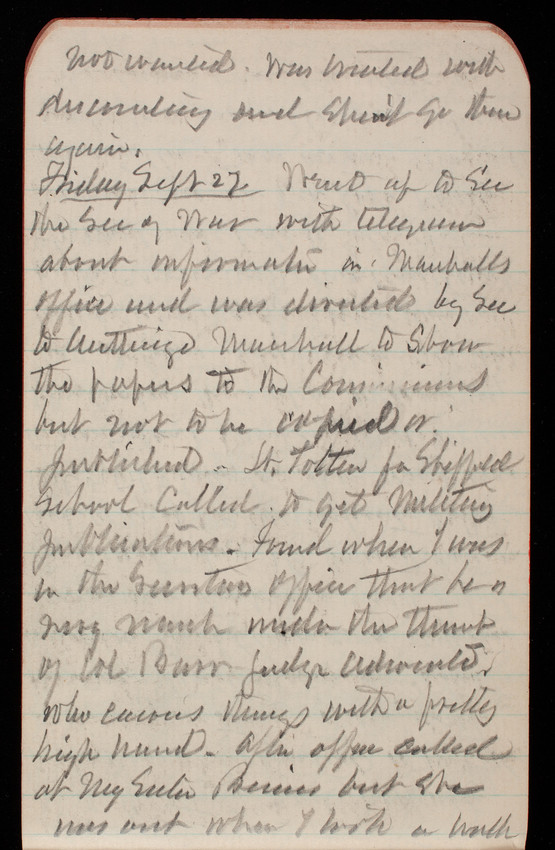 not wanted. Was treated with
and shan't go there
again.
Friday Sept 27 Went up to See
the Sec of War with telegram
about information in Marshalls
office and was directed by Sec
to Authorize Marshall to Show
the papers to the
but not to be copied or
published - Lt. Totten for Sheffield
School Called to get Military
publications. Found when I was
in the Secretarys office that he is
very much under the thumb
of Col Barr Judge Advocate,
who carries things with a pretty
high hand. After office called
at Mrs but she
was out when I took a walk